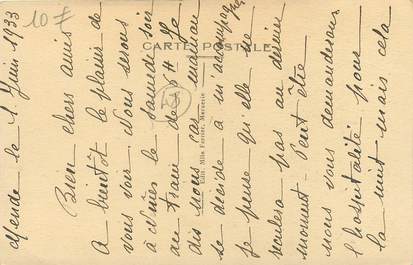 10 F
CARTE POSTALE
Mende le 1 Juin 1933
Bien chers amis
A bientôt le plaisir de
vous voir. Nous serons
à Nimes le samedi soir
au train de 6 H. Je
dis nous car maman
se décide à m'accompagner
je pense qu'elle ne
reculera pas au dernier
moment. Peut être
nous vous demanderons
l'hospitalité pour
la nuit mais cela